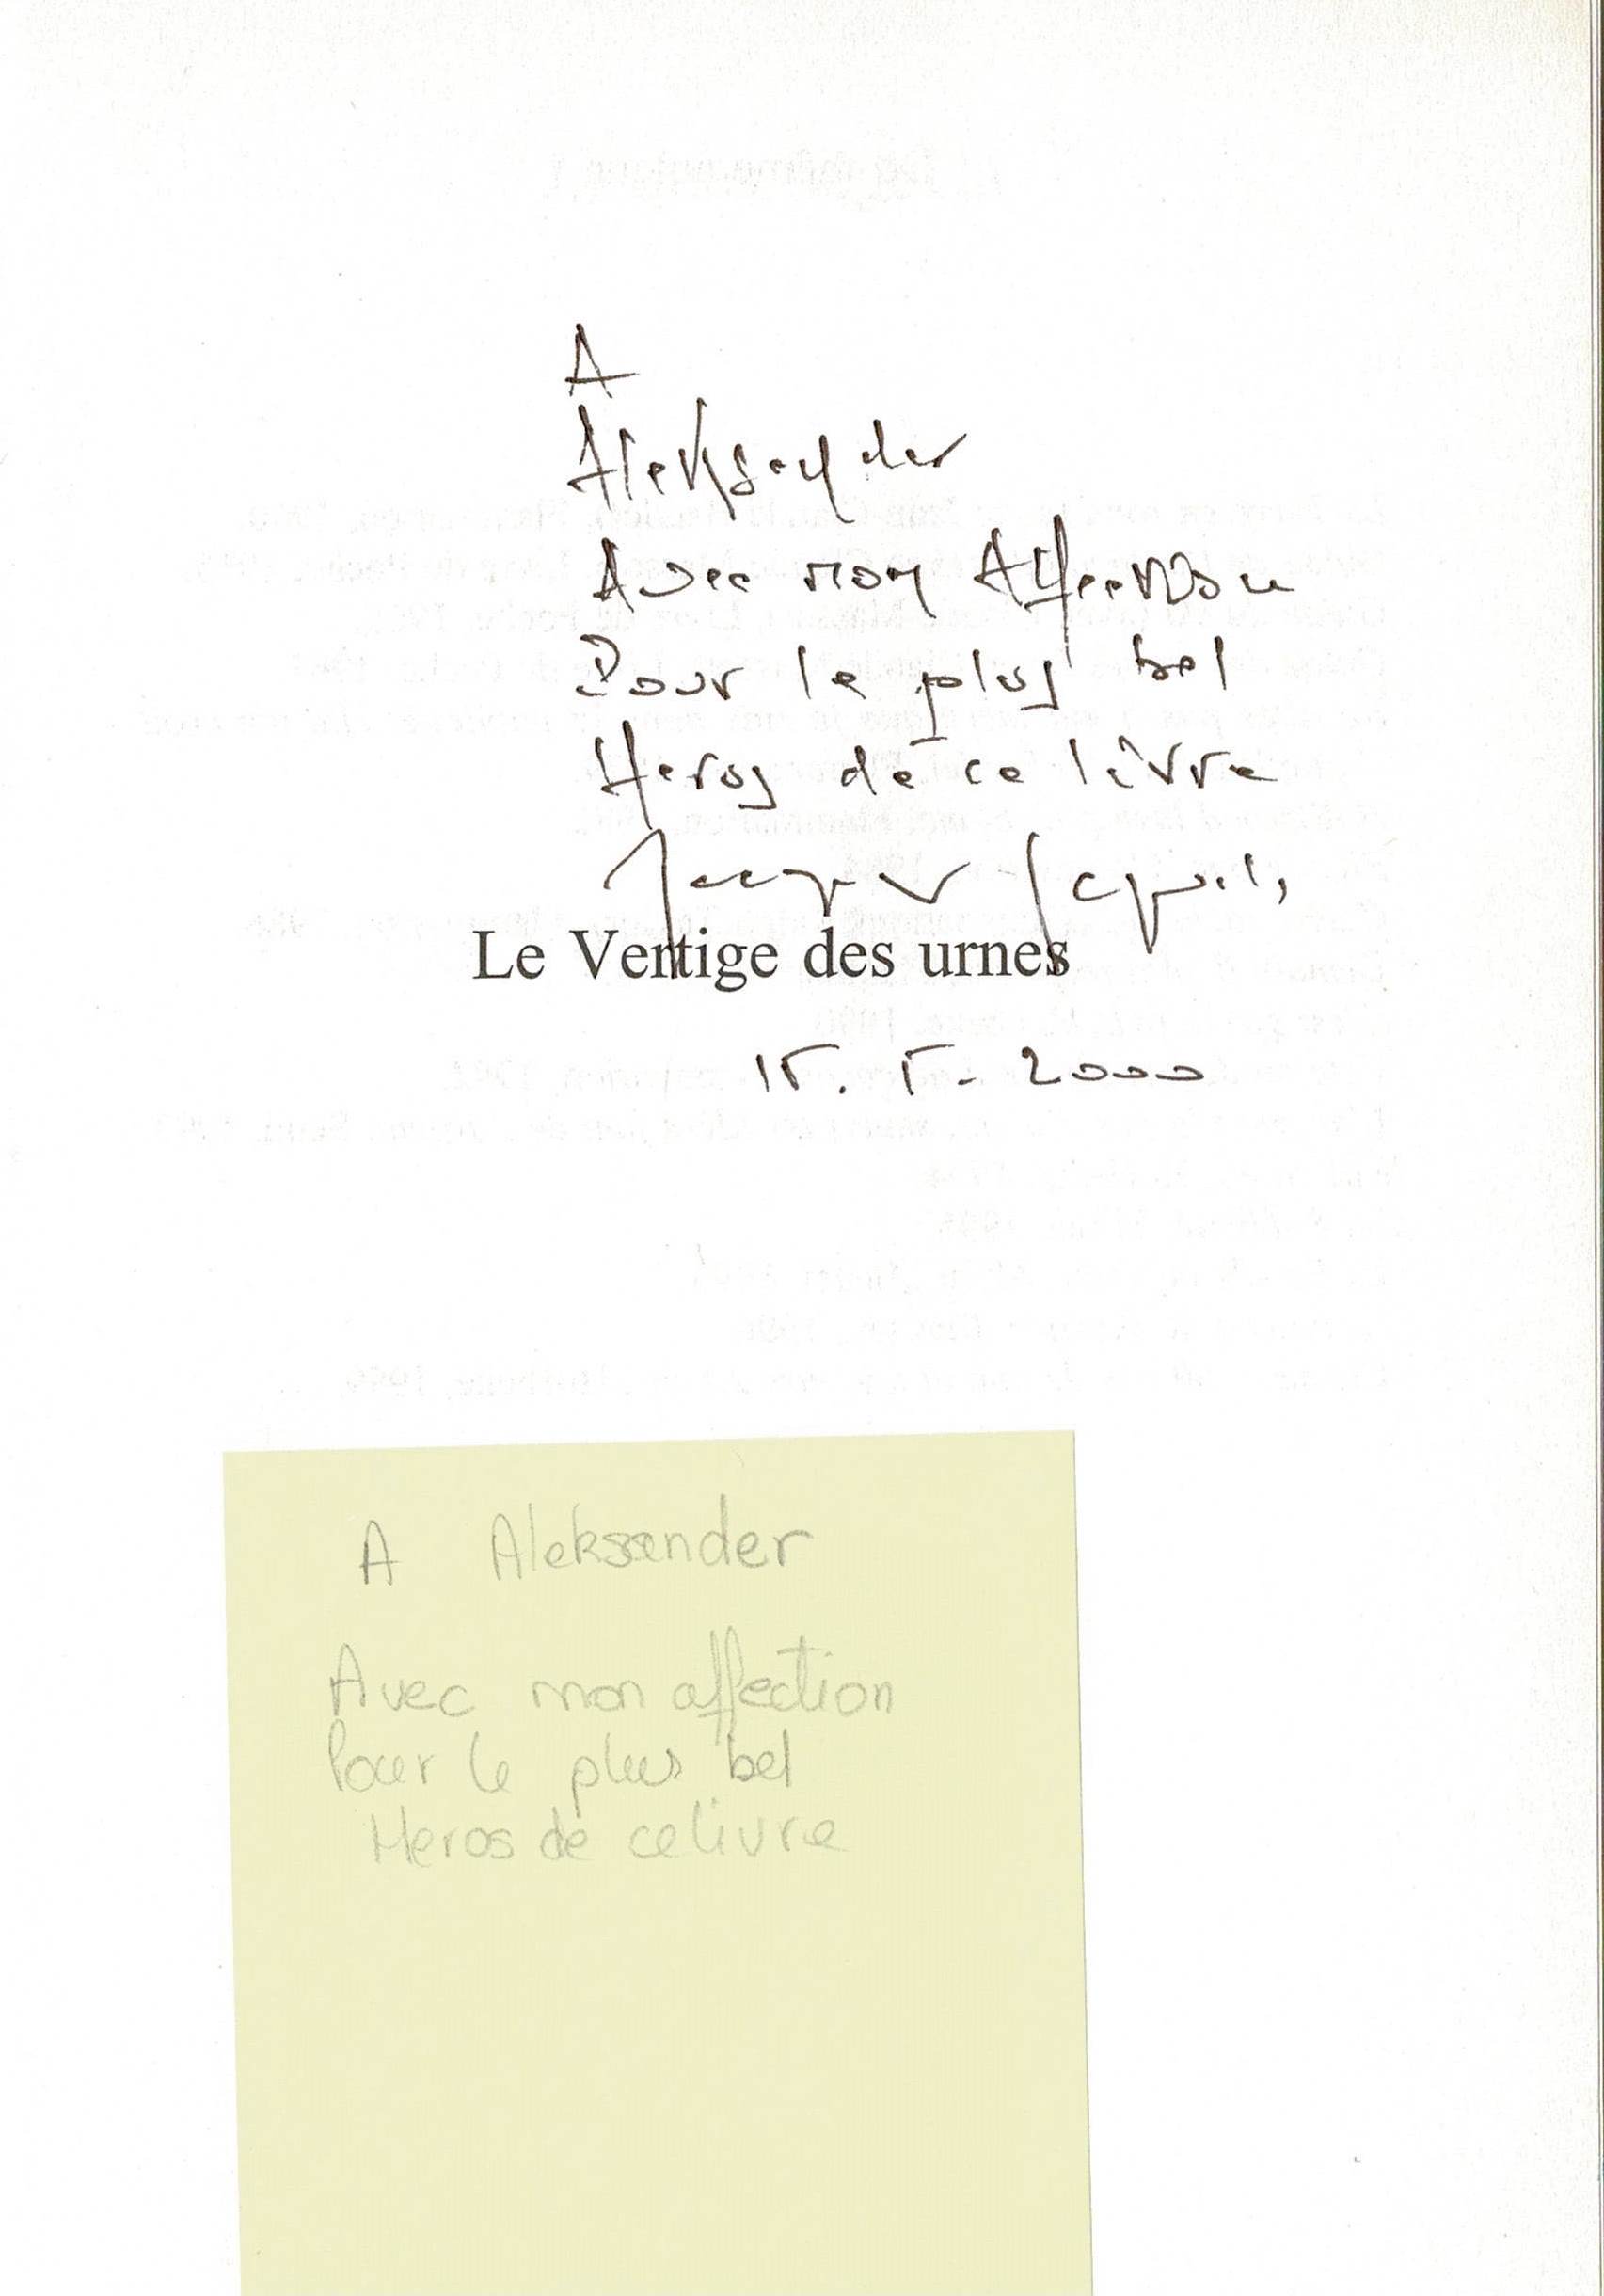 A
Aleksander
Avec mon Affection
Pour le plus bel
Heros de ce livre
Jacques Séguéla
Le Vertige des urnes
15. 5. 2000
A Aleksander
Avec mon affection
Pour le plus bel
Heros de ce livre